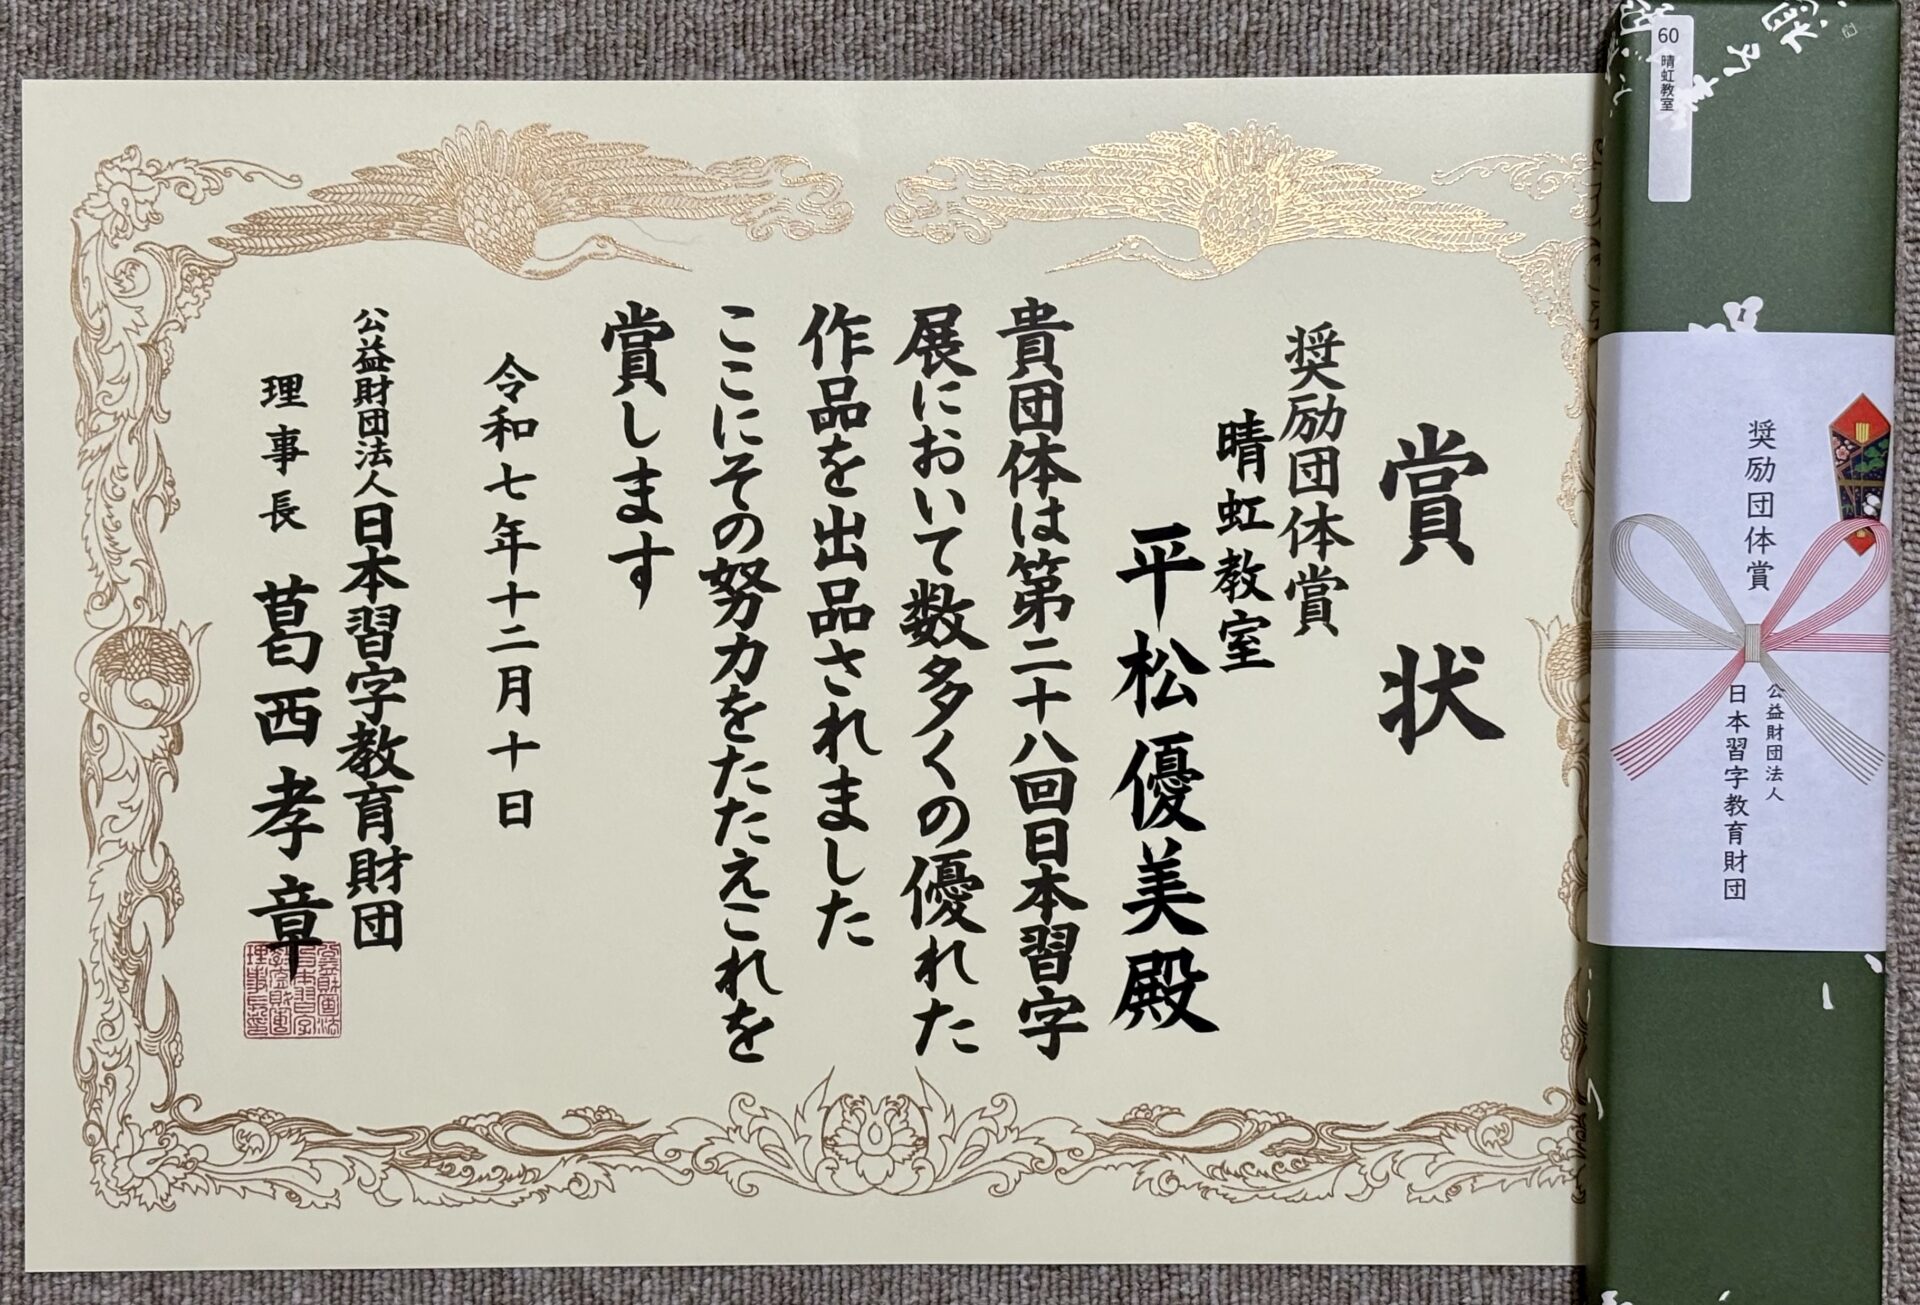 賞状
奨励団体賞
晴虹教室
平松優美殿
貴団体は第二十八回日本習字
展において数多くの優れた
作品を出品されました
ここにその努力をたたえこれを
賞します
令和七年十二月十日
公益財団法人日本習字教育財団
理事長 葛西孝章
60 晴虹教室
奨励団体賞
公益財団法人
日本習字教育財団